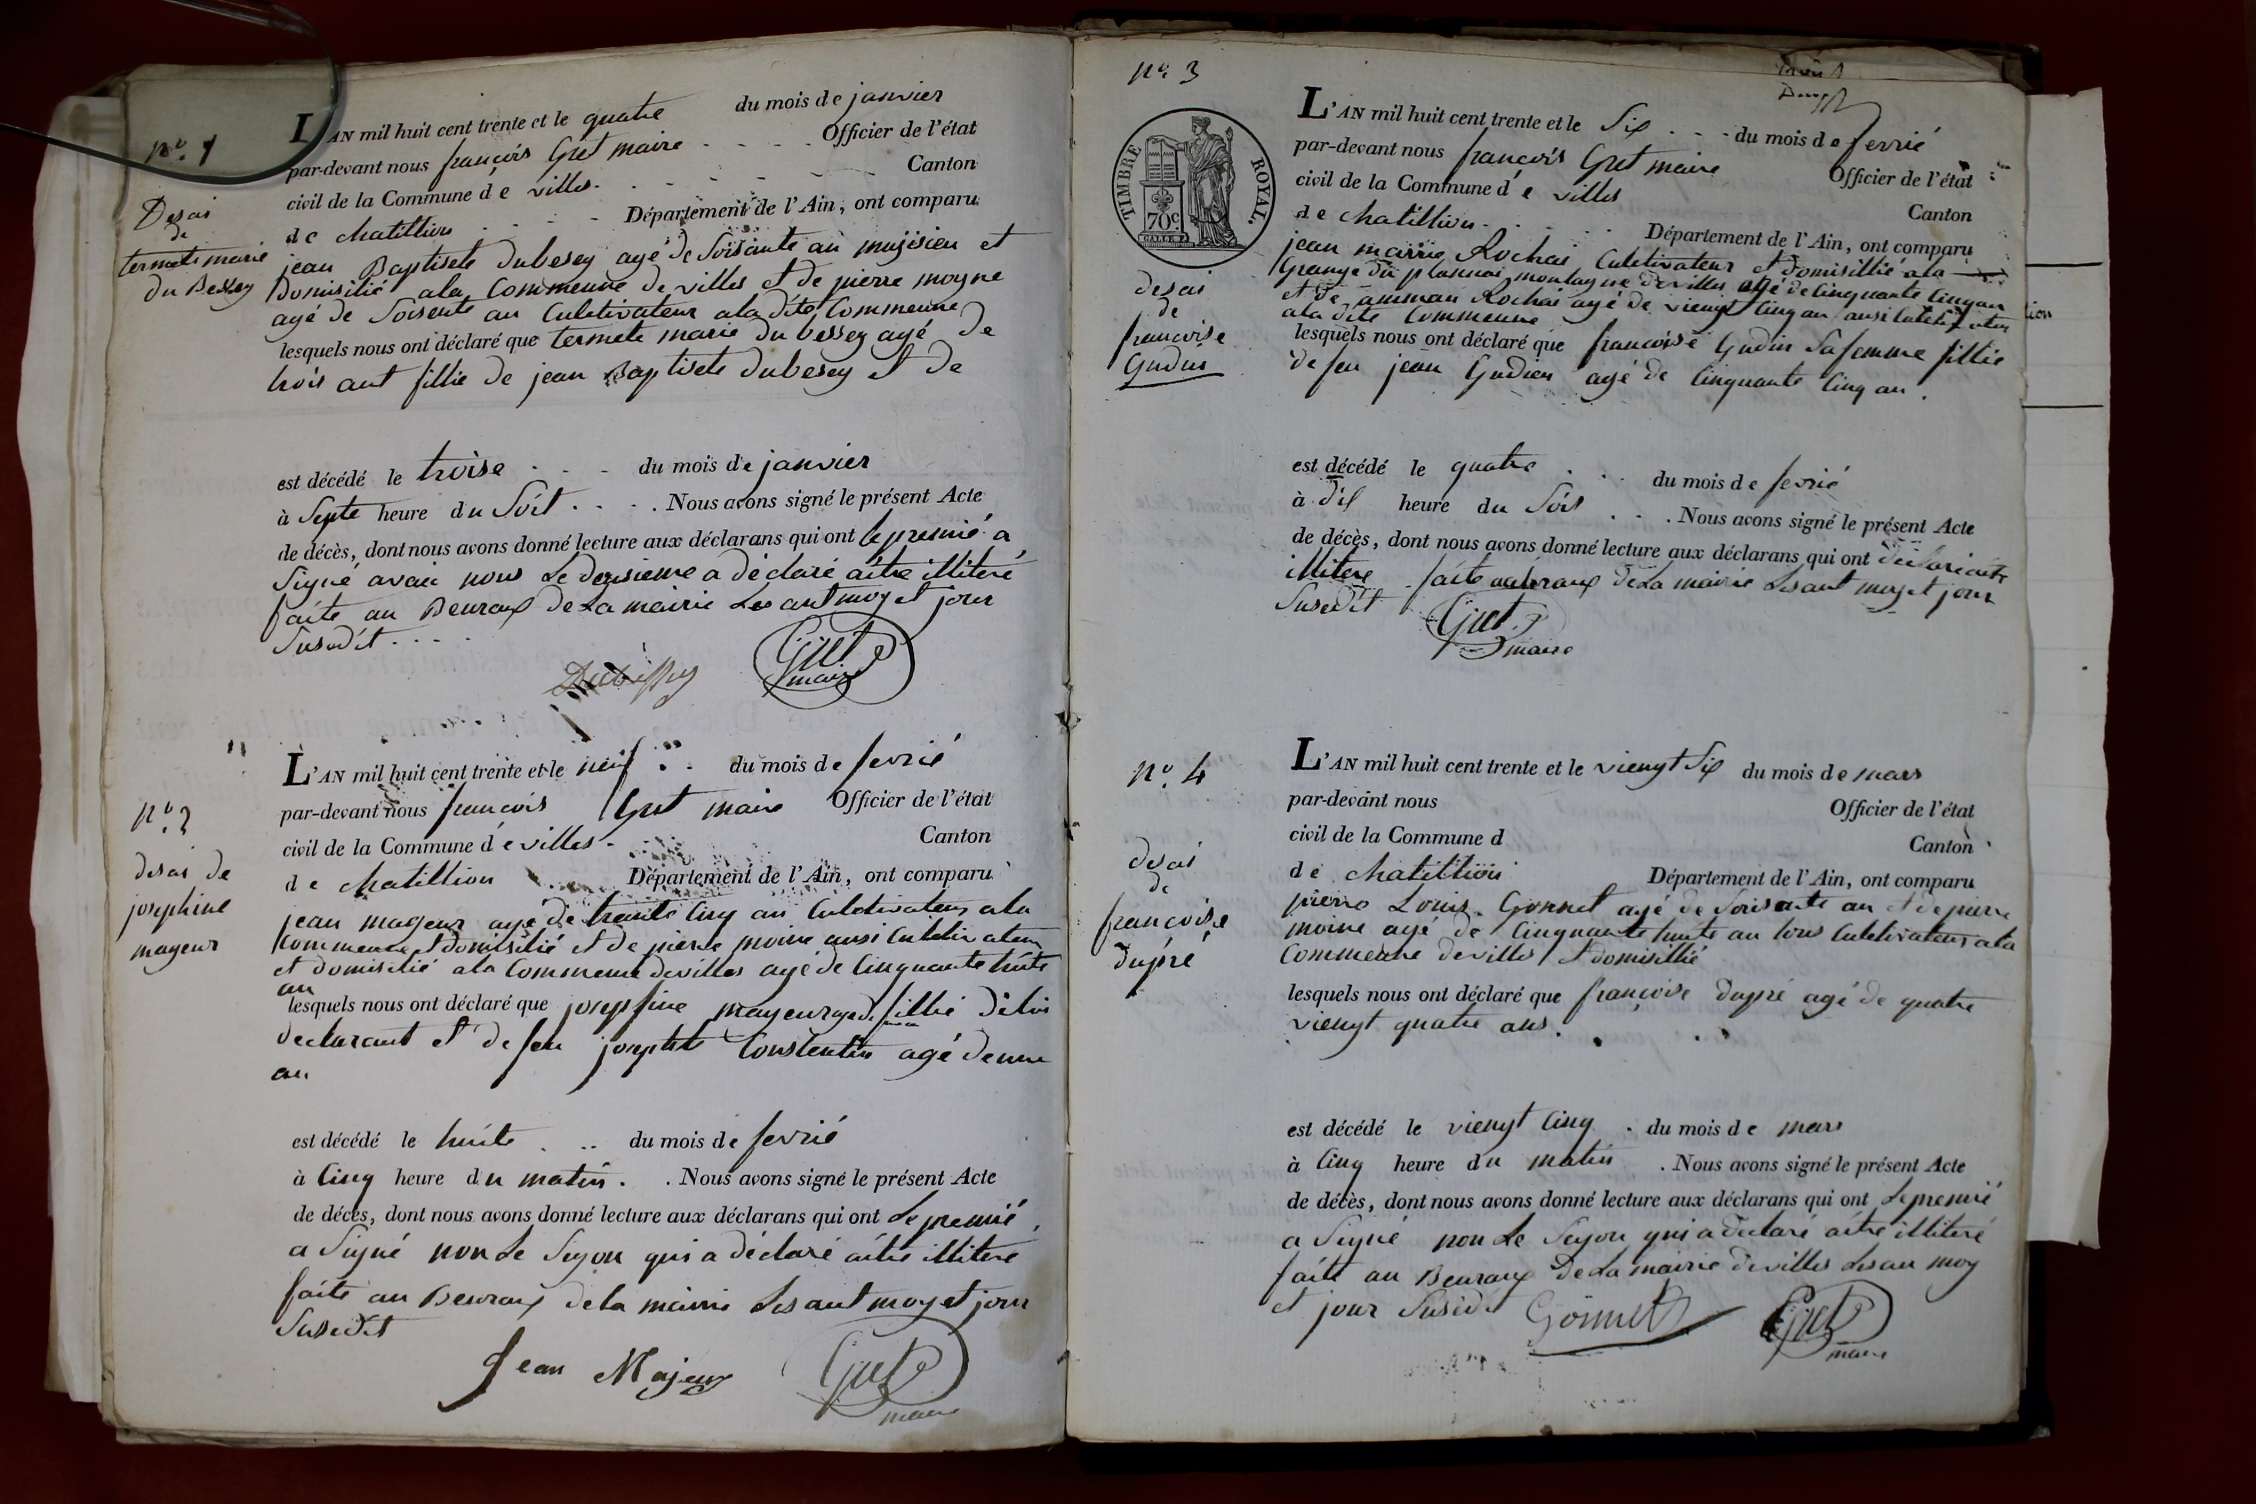 nº. 1
Desai
de
termete marie
du Bessey
L'AN mil huit cent trente et le quatre du mois de janvier
par-devant nous françois Gret maire Officier de l'état
civil de la Commune de villes Canton
de chatillion Département de l'Ain, ont comparu
jean Baptisete dubesey agé de soisante an mujisien et
domisilié ala Commeune de villes et de pierre moyne
agé de Soisente an Culetivateur ala dite Commeune
lesquels nous ont déclaré que termete marie du bessey agé de
trois ant fillie de jean Baptisete dubesey et de
est décédé le troise du mois de janvier
à Septe heure du Soit . Nous avons signé le présent Acte
de décès, dont nous avons donné lecture aux déclarans qui ont le premié a
Signé avaic nous Le deusieme a déclaré aitre illiteré
faite au Beuraux de La mairie Les ant moy et jour
Susedit
Dubessey
Gret
maire
nº. 2
desai de
josephine
mayeur
L'AN mil huit cent trente et le neuf du mois de fevrié
par-devant nous françois Gret maire Officier de l'état
civil de la Commune de villes Canton
de chatillion Département de l'Ain, ont comparu
jean mageur agé de trente Cinq an Culetivateur ala
Commeune et domisilié et de pierre moine ausi Culetivateur
et domisilié ala Commeune de villes agé de Cinquante huite
an
lesquels nous ont déclaré que josepfine mayeur fillie
declarant et de feu josephte Constentin agé deune
an
est décédé le huite du mois de fevrié
à Cinq heure du matin . Nous avons signé le présent Acte
de décès, dont nous avons donné lecture aux déclarans qui ont Le premié
a Signé non Le Segon qui a déclaré aitre illiteré
faite au Beuraux de la mairie Les ant moy et jour
Susedit
Jean Majeur
Gret
maire
nº. 3
TIMBRE ROYAL.
70c
desai
de
francoise
Gudin
L'AN mil huit cent trente et le Six du mois de fevrié
par-devant nous françois Gret maire Officier de l'état
civil de la Commune de villes Canton
de chatillion Département de l'Ain, ont comparu
jean marie Rochai Culetivateur et domisillié ala
Grange du montagne de villes agé de Cinquante Cinq an
et de Rochai agé de viengt Cinq an ausi Culetivateur
ala dite Commeune
lesquels nous ont déclaré que francoise Gudin Sa femme fillie
de feu jean Gudien agé de Cinquante Cinq an
est décédé le quatre du mois de fevrié
à dix heure du Soir . Nous avons signé le présent Acte
de décès, dont nous avons donné lecture aux déclarans qui ont
illitere faite au beraux de La mairie Les ant moy et jour
Susedit
Gret
maire
nº. 4
desai
de
francoise
dupré
L'AN mil huit cent trente et le viengt Six du mois de mars
par-devant nous Officier de l'état
civil de la Commune d Canton
de chatillion Département de l'Ain, ont comparu
pierre Louis Gonnet agé de Soisante an et de pierre
moine agé de Cinquante huite an tous Culetivateur ala
Commeune de villes et domisillié
lesquels nous ont déclaré que françoise dupré agé de quatre
viengt quatre ans.
est décédé le viengt Cinq du mois de mars
à Cinq heure du matin . Nous avons signé le présent Acte
de décès, dont nous avons donné lecture aux déclarans qui ont Le premié
a Signé non Le Segon qui a déclaré aitre illiteré
faite au Beuraux de La mairie de villes Les an moy
et jour Susedit
Gonnet
Gret
maire